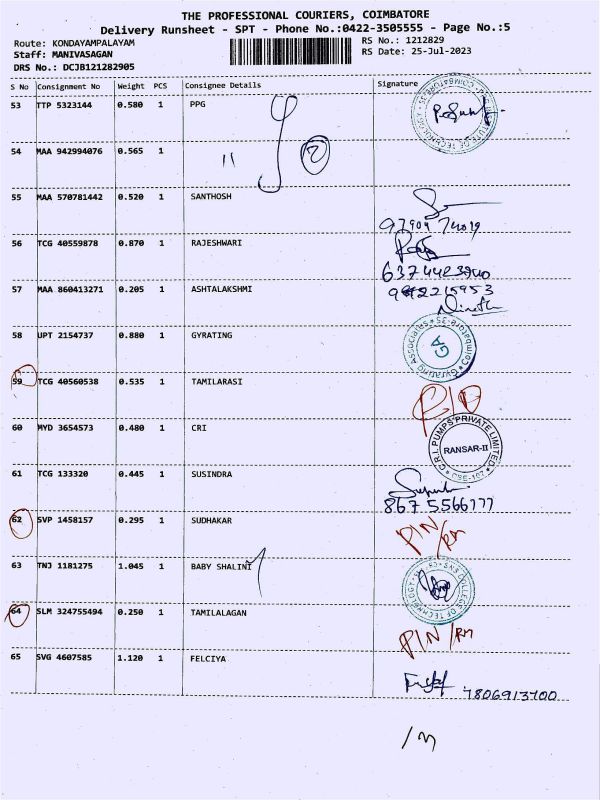 THE PROFESSIONAL COURIERS, COIMBATORE
Delivery Runsheet - SPT - Phone No.:0422-3505555 - Page No.:5
Route: KONDAYAMPALAYAM
Staff: MANIVASAGAN
DRS No.: DCJB121282905
RS No.: 1212829
RS Date: 25-Jul-2023
S No Consignment No Weight PCS Consignee Details Signature
53 TTP 5323144 0.580 1 PPG
54 MAA 942994076 0.565 1 11 2
55 MAA 570781442 0.520 1 SANTHOSH
56 TCG 40559878 0.870 1 RAJESHWARI
6374423940
57 MAA 860413271 0.205 1 ASHTALAKSHMI
58 UPT 2154737 0.880 1 GYRATING
Gyrating Associates Coimbatore-35 GA
59 TCG 40560538 0.535 1 TAMILARASI
60 MYD 3654573 0.480 1 CRI
C.R.I. PUMPS PRIVATE LIMITED
RANSAR-II
61 TCG 133320 0.445 1 SUSINDRA
867 5566777
62 SVP 1458157 0.295 1 SUDHAKAR PIN/RM
63 TNJ 1181275 1.045 1 BABY SHALINI
SNS COLLEGE OF TECHNOLOGY
64 SLM 324755494 0.250 1 TAMILALAGAN PIN/RM
65 SVG 4607585 1.120 1 FELCIYA
7806913700